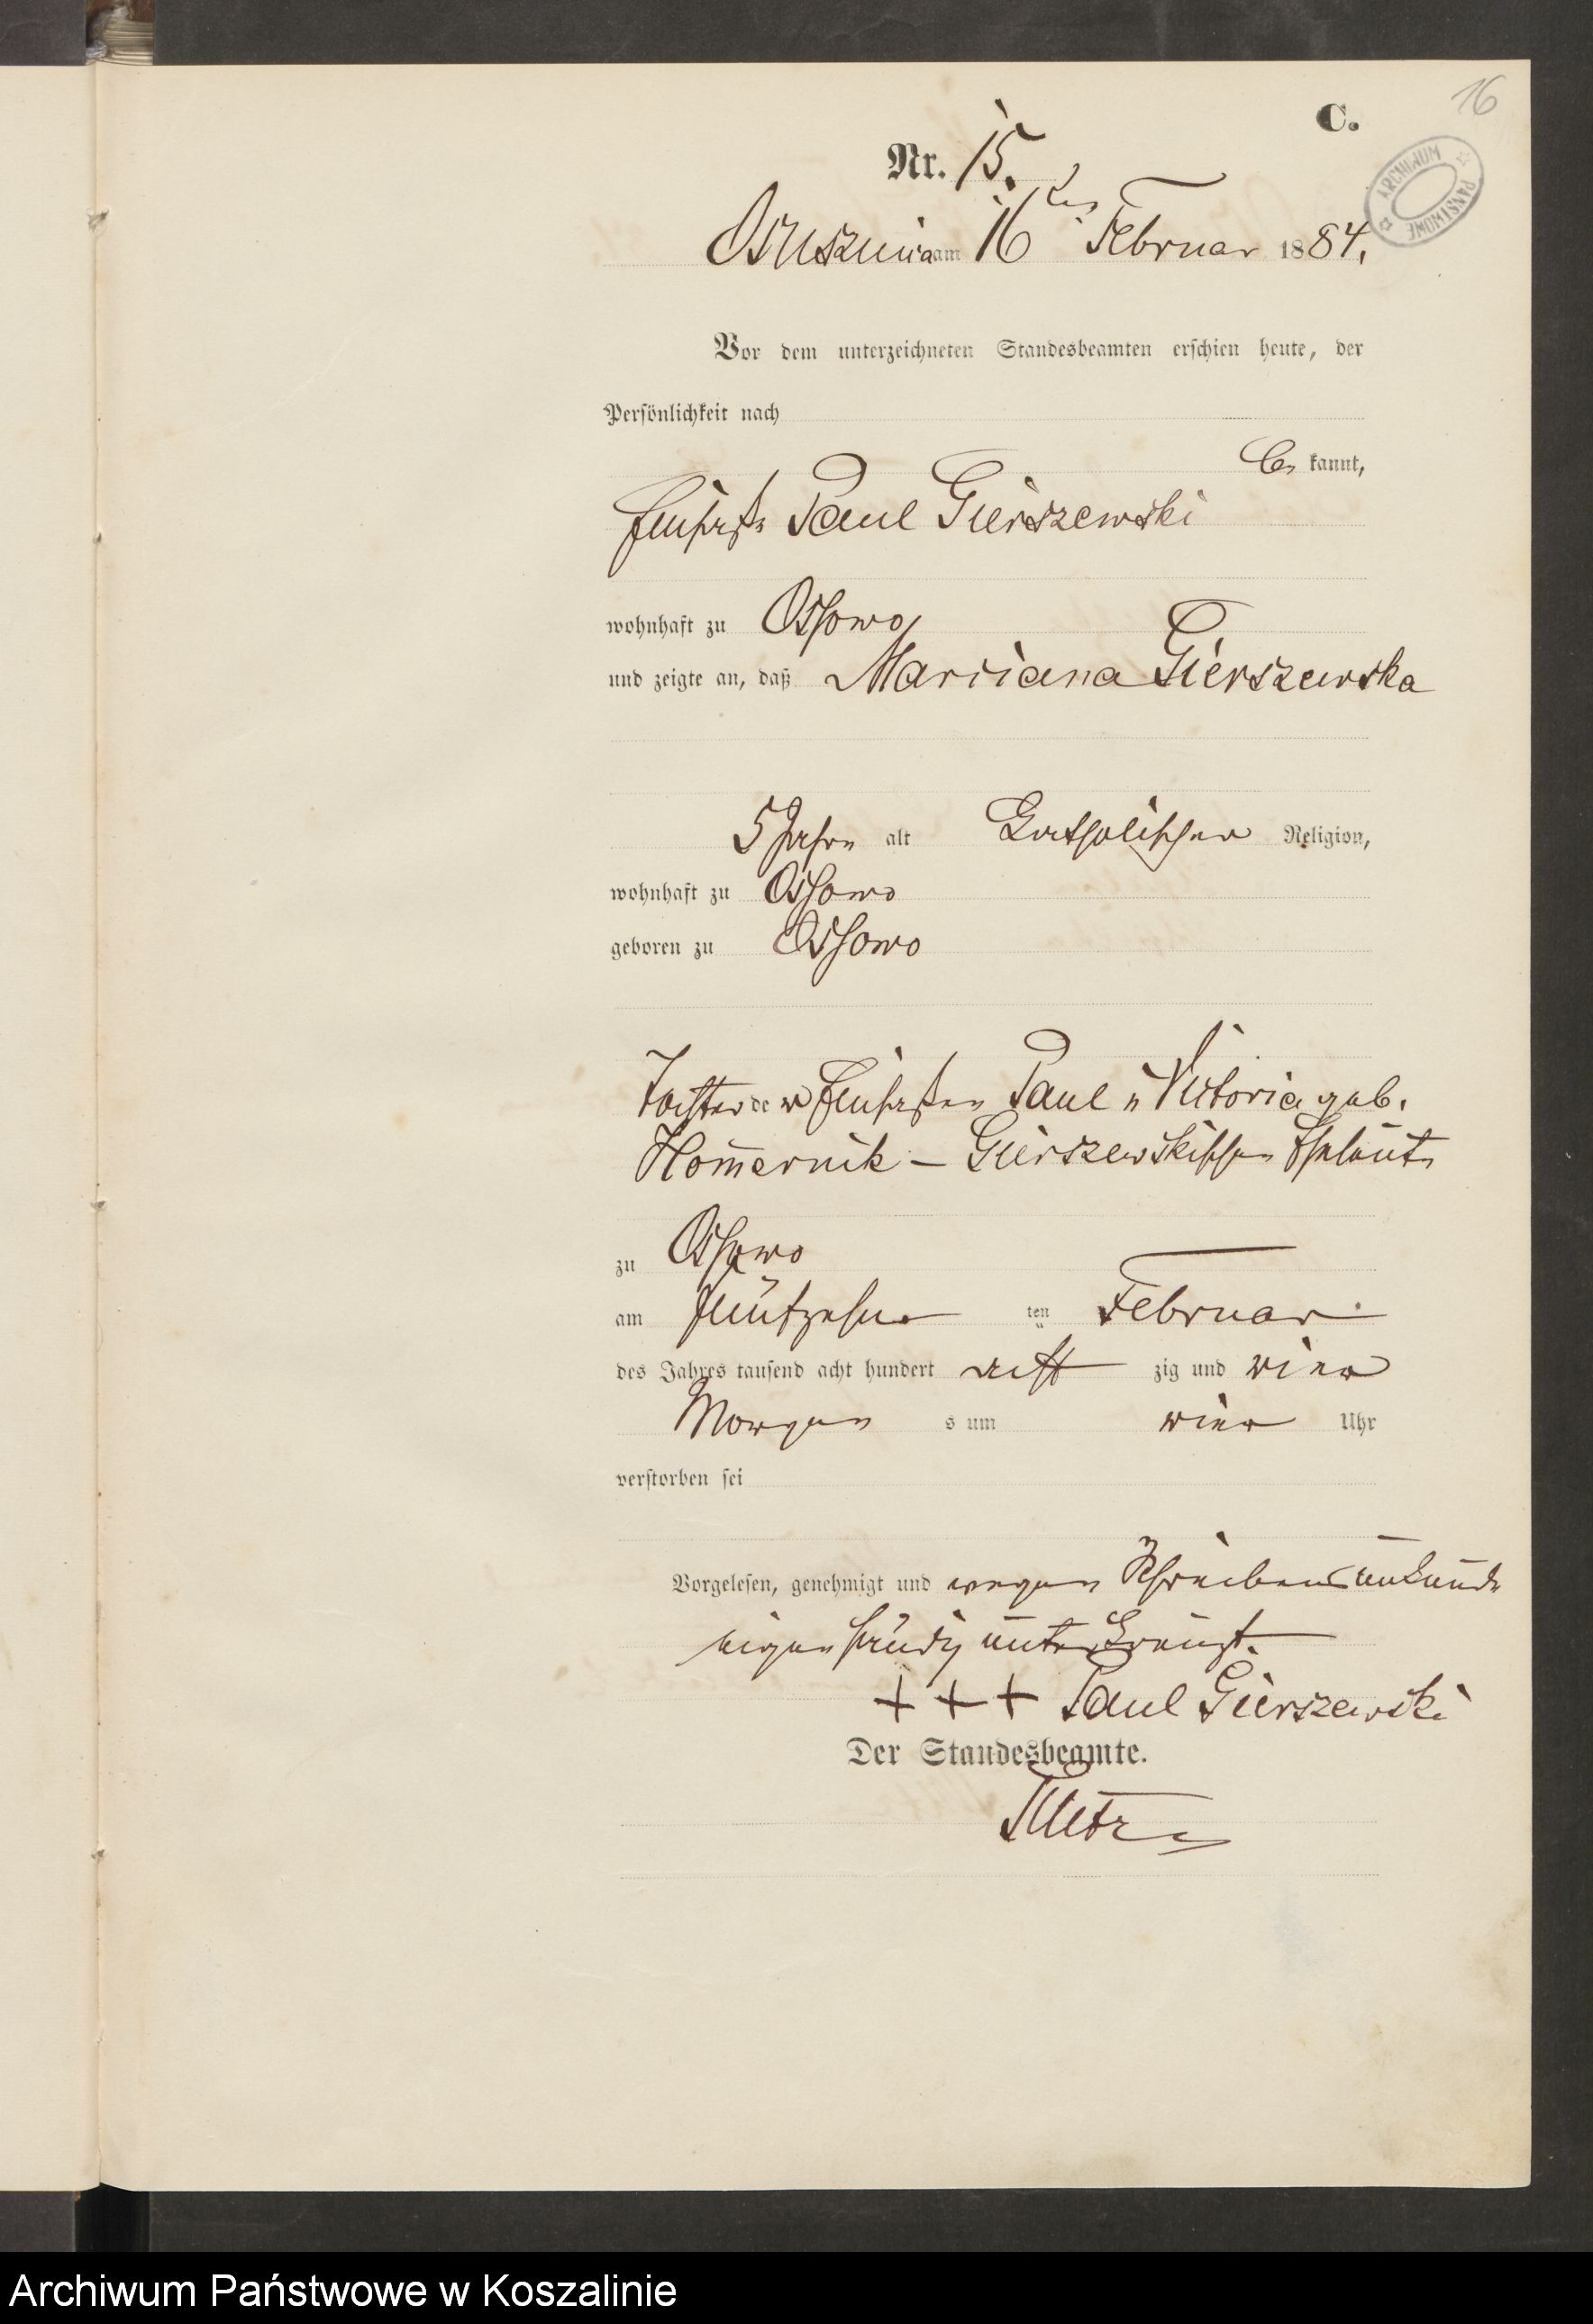 16
C.
ARCHIWUM PAŃSTWOWE
Nr. 15.
am 16ten Februar 1884.
Vor dem unterzeichneten Standesbeamten erschien heute, der
Persönlichkeit nach
be kannt,
Paul Gierszewski
wohnhaft zu Ossowo,
und zeigte an, daß Marianna Gierszewska
5 Jahre alt katholischer Religion,
wohnhaft zu Ossowo
geboren zu Ossowo
Tochter der Paul u Victoria geb.
Gierszewskischen Eheleute
zu Ossowo
am fünfzehn ten Februar
des Jahres tausend acht hundert acht zig und vier
Morgen s um vier Uhr
verstorben sei
Vorgelesen, genehmigt und wegen Schreibensunkunde
eigenhändig unterkreuzt.
+ + + Paul Gierszewski
Der Standesbeamte.
Archiwum Państwowe w Koszalinie